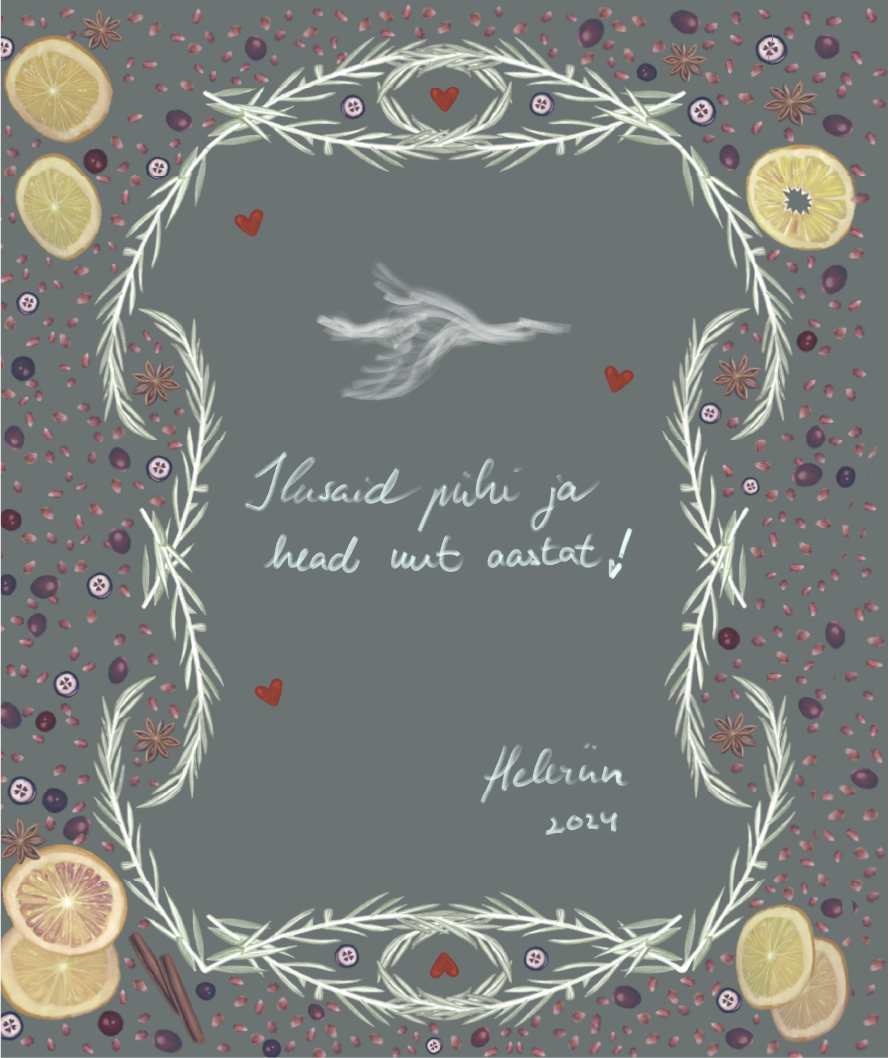 Ilusaid pühi ja
head uut aastat!
Heleriin
2024